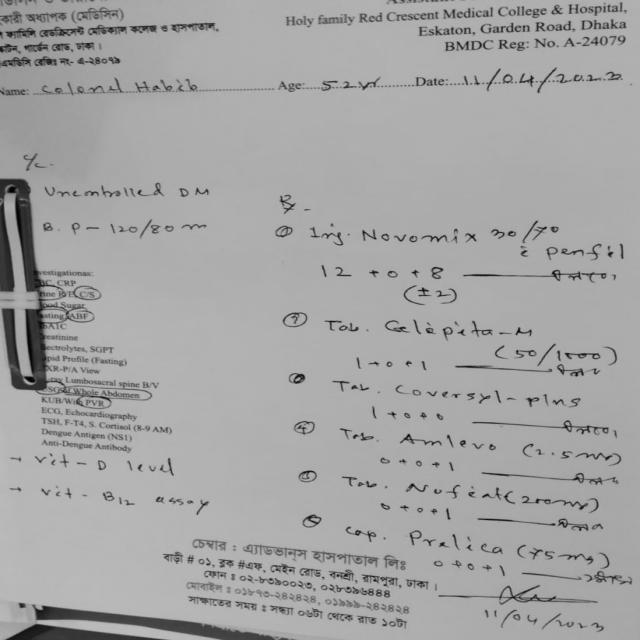 কারী অধ্যাপক (মেডিসিন)
ফ্যামিলি রেডক্রিসেন্ট মেডিক্যাল কলেজ ও হাসপাতাল,
গার্ডেন রোড, ঢাকা।
Holy family Red Crescent Medical College & Hospital,
Eskaton, Garden Road, Dhaka
BMDC Reg: No. A-24079
Name: Colonel Habib Age: 52 yr Date: 11/04/2023
C/C.
Uncontrolled DM
B. P - 120/80 m
vestigationas:
BC, CRP
rine R/E, C/S
ood Sugar
asting/ABF
bA1C
reatinine
lectrolytes, SGPT
ipid Profile (Fasting)
XR-P/A View
ray Lumbosacral spine B/V
USG of Whole Abdomen
KUB/With PVR
ECG, Echocardiography
TSH, F-T4, S. Cortisol (8-9 AM)
Dengue Antigen (NS1)
Anti-Dengue Antibody
→ vit-D level
→ vit-B12 assay
Rx-
Inj. Novomix 30/70
c penfil
12 + 0 + 8
(±2)
Tab. Galepita-M
(50/1000)
1+0+1
Tab. Coversyl-plus
1+0+0
Tab. Amlevo (2.5mg)
0+0+1
Tab. (200mg)
0+0+1
Cap. Prelica (75mg)
0+0+1
11/04/2023
চেম্বার : এ্যাডভান্স হাসপাতাল লিঃ
বাড়ী # ০১, ব্লক #এফ, মেইন রোড, বনশ্রী, রামপুরা, ঢাকা।
ফোন : ০২-৮৩৯০০২৩, ০২৮৩৯৬৪৪৪
মোবাইল : ০১৮৭৩-২৪২৪২৪, ০১৯৯৯-২৪২৪২৪
সাক্ষাতের সময় : সন্ধ্যা ০৬টা থেকে রাত ১০টা